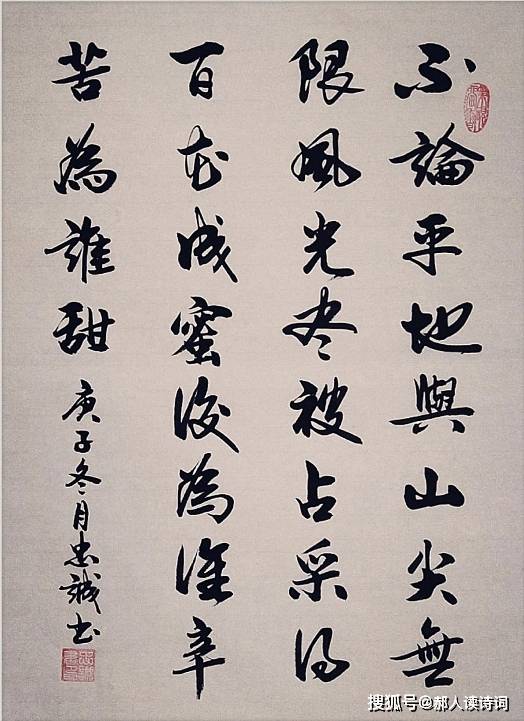 不論平地與山尖無
限風光尽被占采得
百花成蜜後為誰辛
苦為誰甜
庚子冬月忠誠书
搜狐号@郝人读诗词